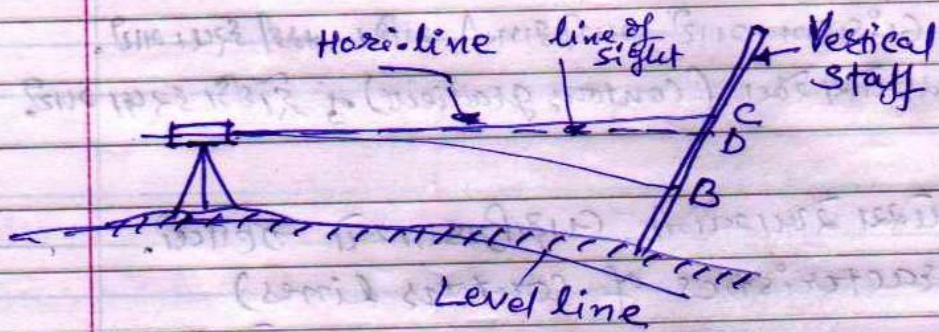 Hori-line
line of
sight
Vertical
Staff
C
D
B
Level line